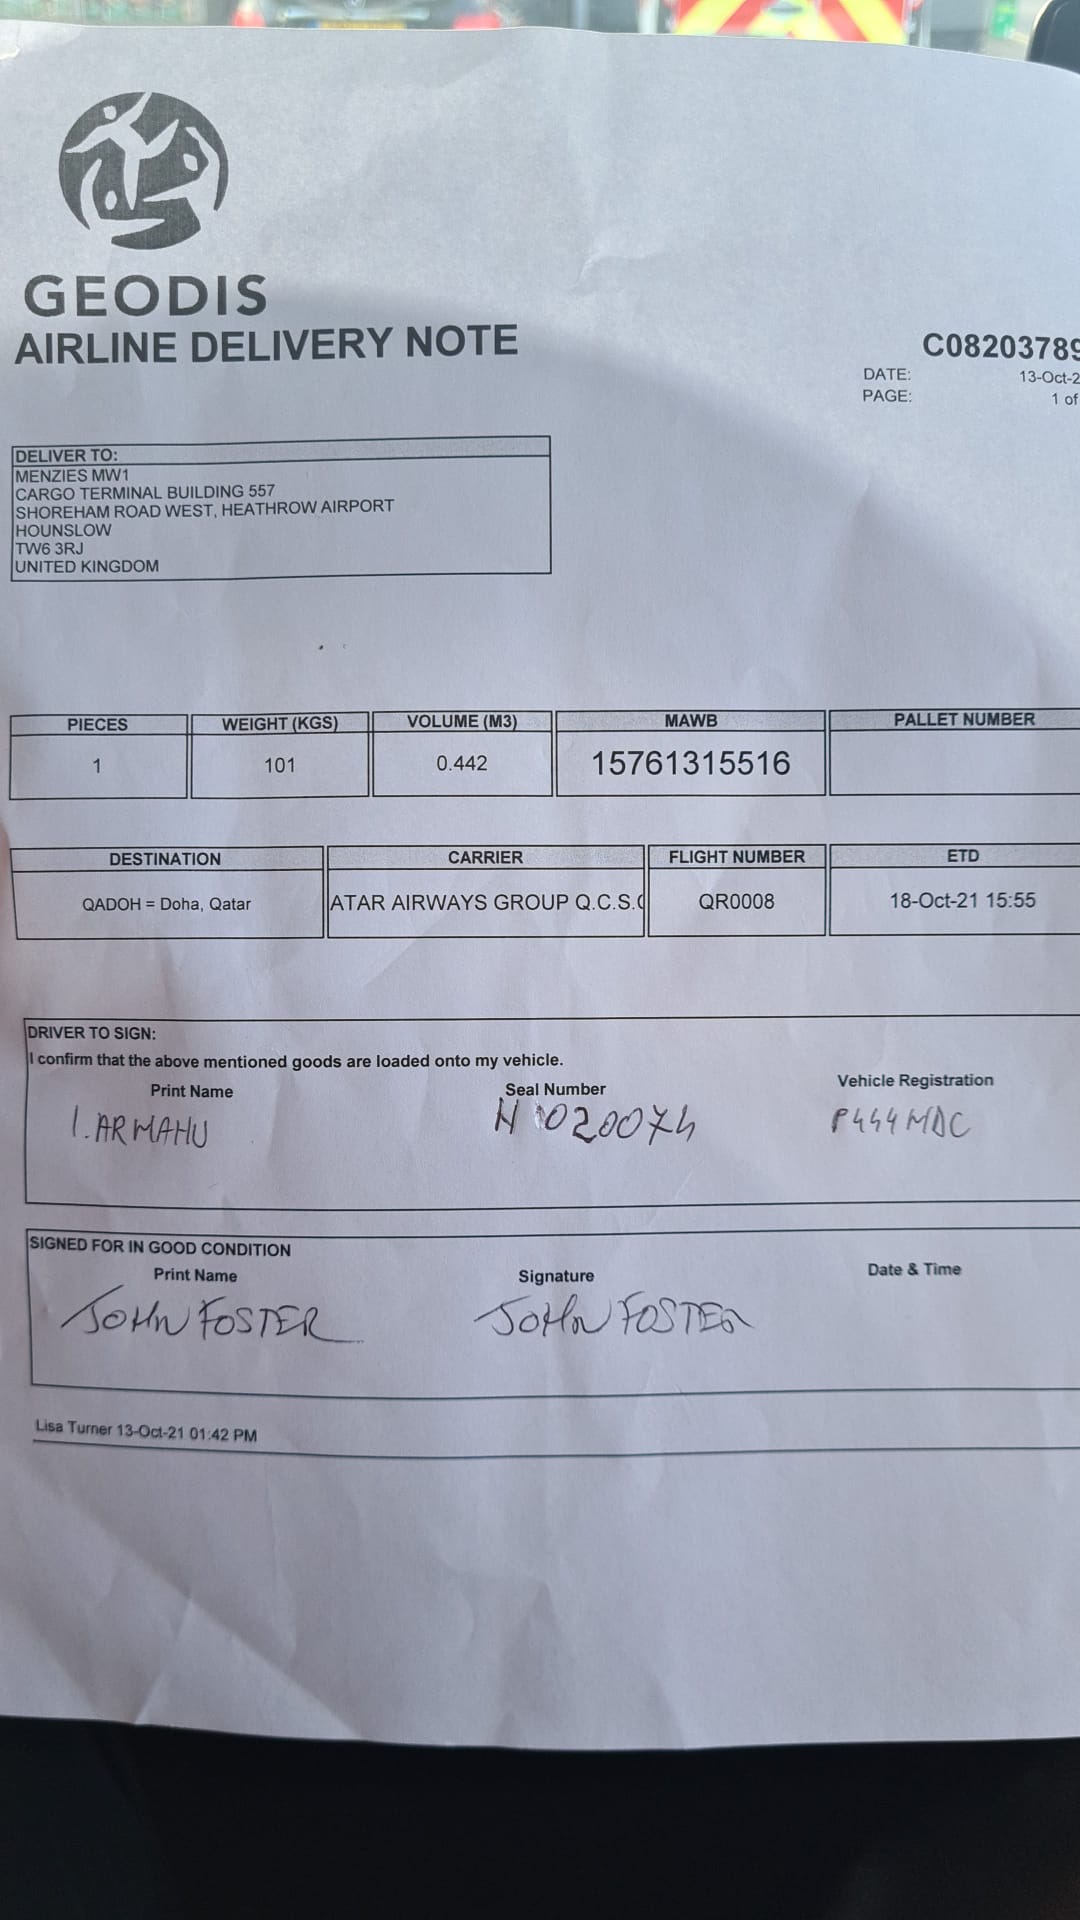 GEODIS
AIRLINE DELIVERY NOTE
C08203789
DATE: 13-Oct-2
PAGE: 1 of
DELIVER TO:
MENZIES MW1
CARGO TERMINAL BUILDING 557
SHOREHAM ROAD WEST, HEATHROW AIRPORT
HOUNSLOW
TW6 3RJ
UNITED KINGDOM
PIECES WEIGHT (KGS) VOLUME (M3) MAWB PALLET NUMBER
1 101 0.442 15761315516
DESTINATION CARRIER FLIGHT NUMBER ETD
QADOH = Doha, Qatar ATAR AIRWAYS GROUP Q.C.S.( QR0008 18-Oct-21 15:55
DRIVER TO SIGN:
I confirm that the above mentioned goods are loaded onto my vehicle.
Print Name Seal Number Vehicle Registration
I. ARMAHU P444MDC
SIGNED FOR IN GOOD CONDITION
Print Name Signature Date & Time
JOHN FOSTER JOHN FOSTER
Lisa Turner 13-Oct-21 01:42 PM